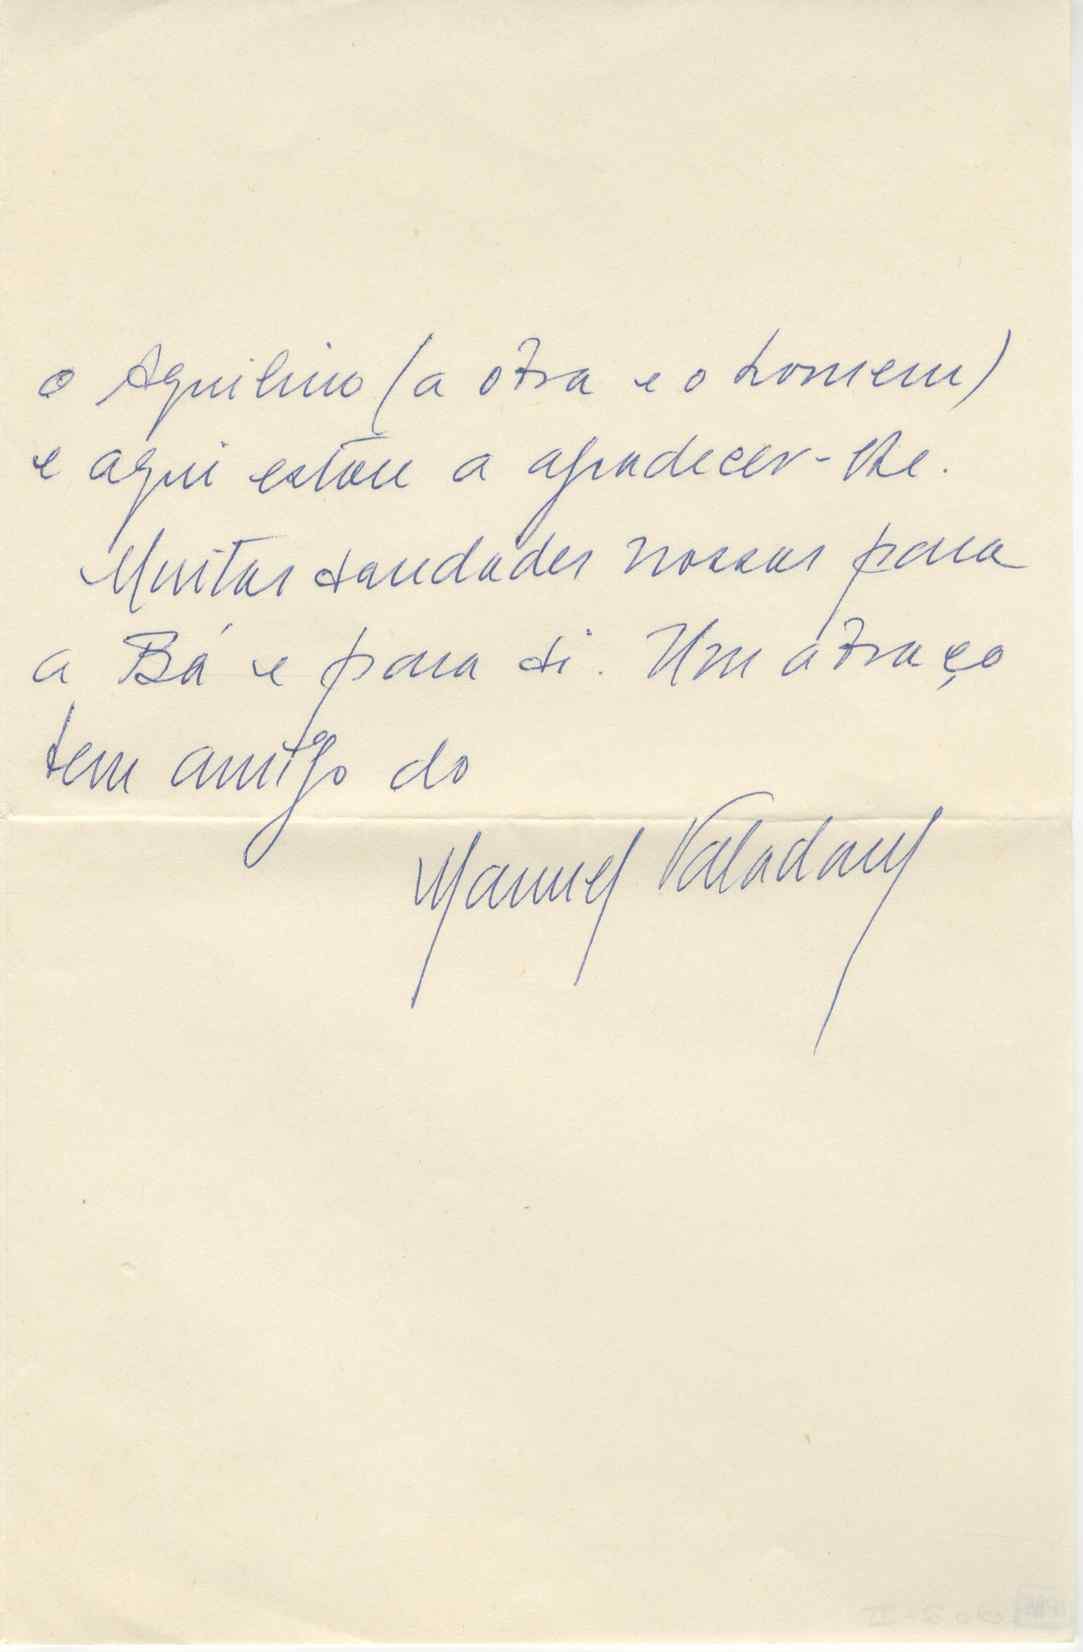 o Aquilino (a obra e o homem)
e aqui estou a agradecer-lhe.
Muitas saudades nossas para
a Bá e para si. Um abraço
bem amigo do
Manuel Valadares